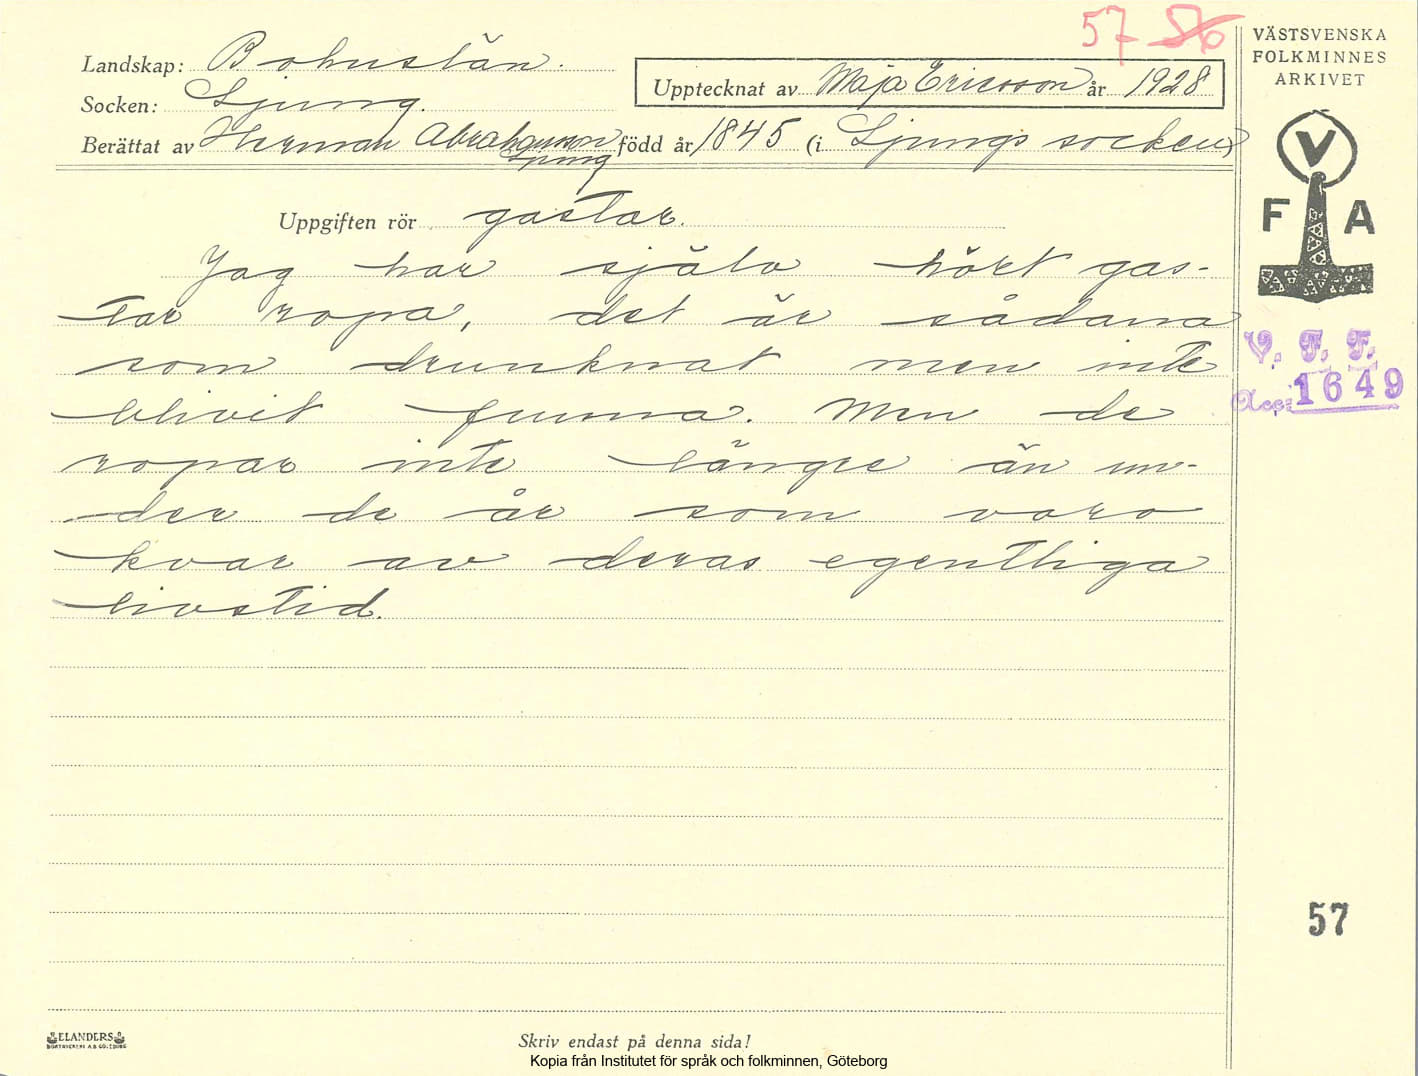 57 56
VÄSTSVENSKA
FOLKMINNES
ARKIVET
Landskap: Bohuslän.
Socken: Ljung.
Upptecknat av Maja Ericsson år 1928
Berättat av Herman Abrahamson född år 1845 (i Ljungs socken)
Ljung
V
F A
Uppgiften rör gastar.
Jag har själv hört gas-
tar ropa, det är sådana
som drunknat men inte
blivit funna. Men de
ropar inte längre än un-
der de år som voro
kvar av deras egentliga
livstid.
V. F. F.
Acc: 1649
57
ELANDERS
BOKTRYCKERI A.B. GÖTEBORG
Skriv endast på denna sida!
Kopia från Institutet för språk och folkminnen, Göteborg